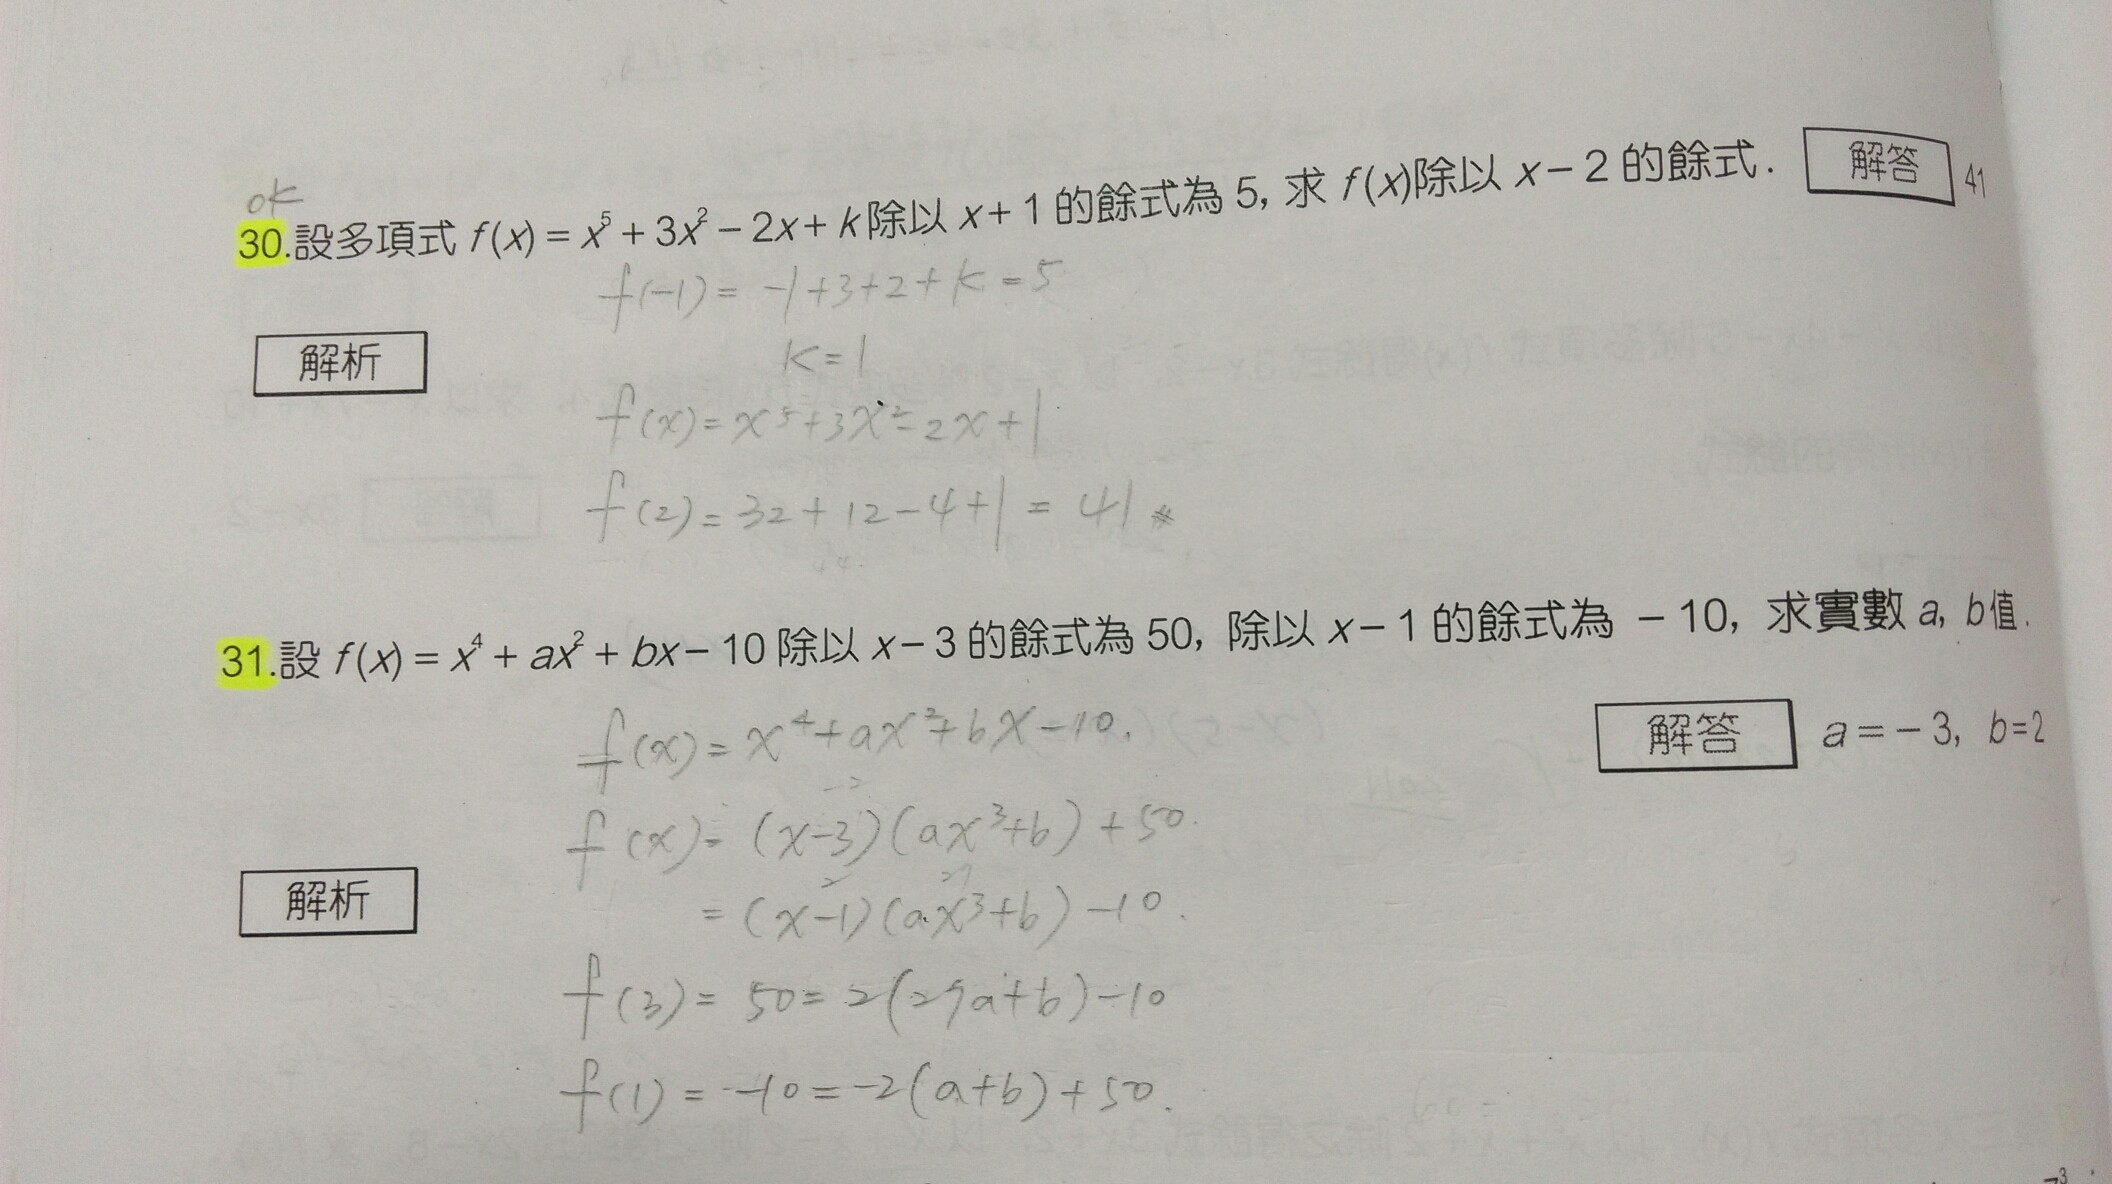 ok
30.設多項式 f(x) = x⁵ + 3x² − 2x + k 除以 x + 1 的餘式為 5, 求 f(x)除以 x − 2 的餘式. 解答 41
f(-1) = -1+3+2+k = 5
解析
k=1
f(x) = x⁵+3x²-2x+1
f(2) = 32+12-4+1 = 41
31.設 f(x) = x⁴ + ax² + bx − 10 除以 x − 3 的餘式為 50, 除以 x − 1 的餘式為 − 10, 求實數 a, b值.
f(x) = x⁴+ax²+bx-10.
解答 a = − 3, b=2
f(x) = (x-3)(ax³+b)+50.
解析
= (x-1)(ax³+b)-10.
f(3) = 50 = 2(27a+b)-10
f(1) = -10 = -2(a+b)+50.